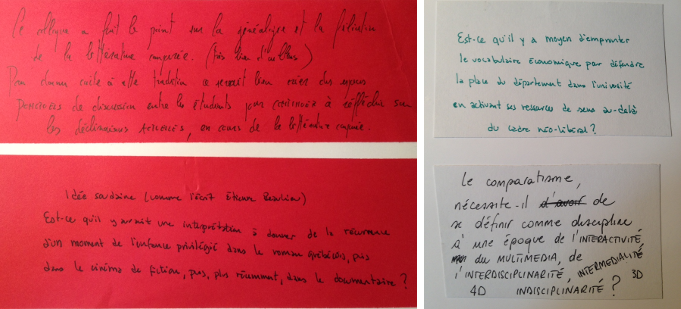 Ce colloque a fait le point sur la généalogie et la filiation
de la littérature comparée. (très bien d'ailleurs)
Pour donner suite à cette tradition ce serait bien créer des espaces
de discussion entre les étudiants pour continuer à réfléchir sur
les déclinaisons actuelles, en cours de la littérature comparée.
Idée soudaine (comme l'écrit Étienne Beaulieu)
Est-ce qu'il y aurait une interprétation à donner de la récurrence
d'un moment de l'enfance privilégié dans le roman québécois, puis
dans le cinéma de fiction, puis, plus récemment, dans le documentaire ?
Est-ce qu'il y a moyen d'emprunter
le vocabulaire économique par défendre
la place du département dans l'université
en activant ses ressources de sens au-delà
du cadre néo-libéral ?
Le comparatisme,
nécessite-il d'avoir de
se définir comme discipline
à une époque de l'INTERACTIVITÉ,
du MULTIMEDIA, de
l'INTERDISCIPLINARITÉ, INTERMEDIALITÉ 3D
4D INDISCIPLINARITÉ ?